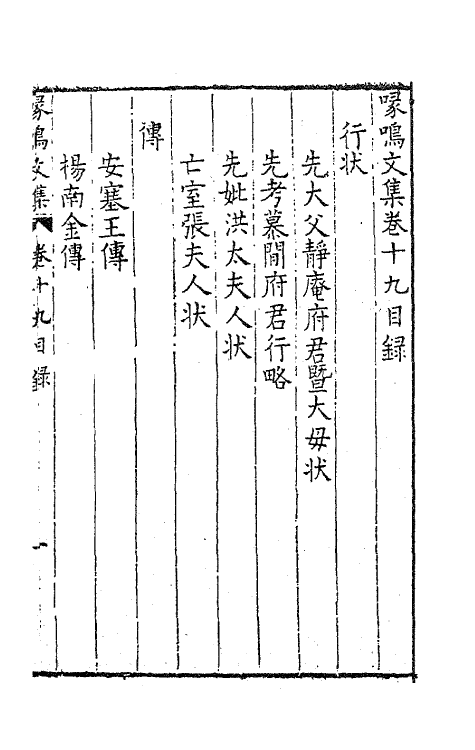 喙鳴文集卷十九目録
行状
先大父靜庵府君曁大毋状
先考慕閒府君行略
先妣洪太夫人状
亡室張夫人状
傳
安塞王傳
楊南金傳
喙鳴文集 卷十九目録 一